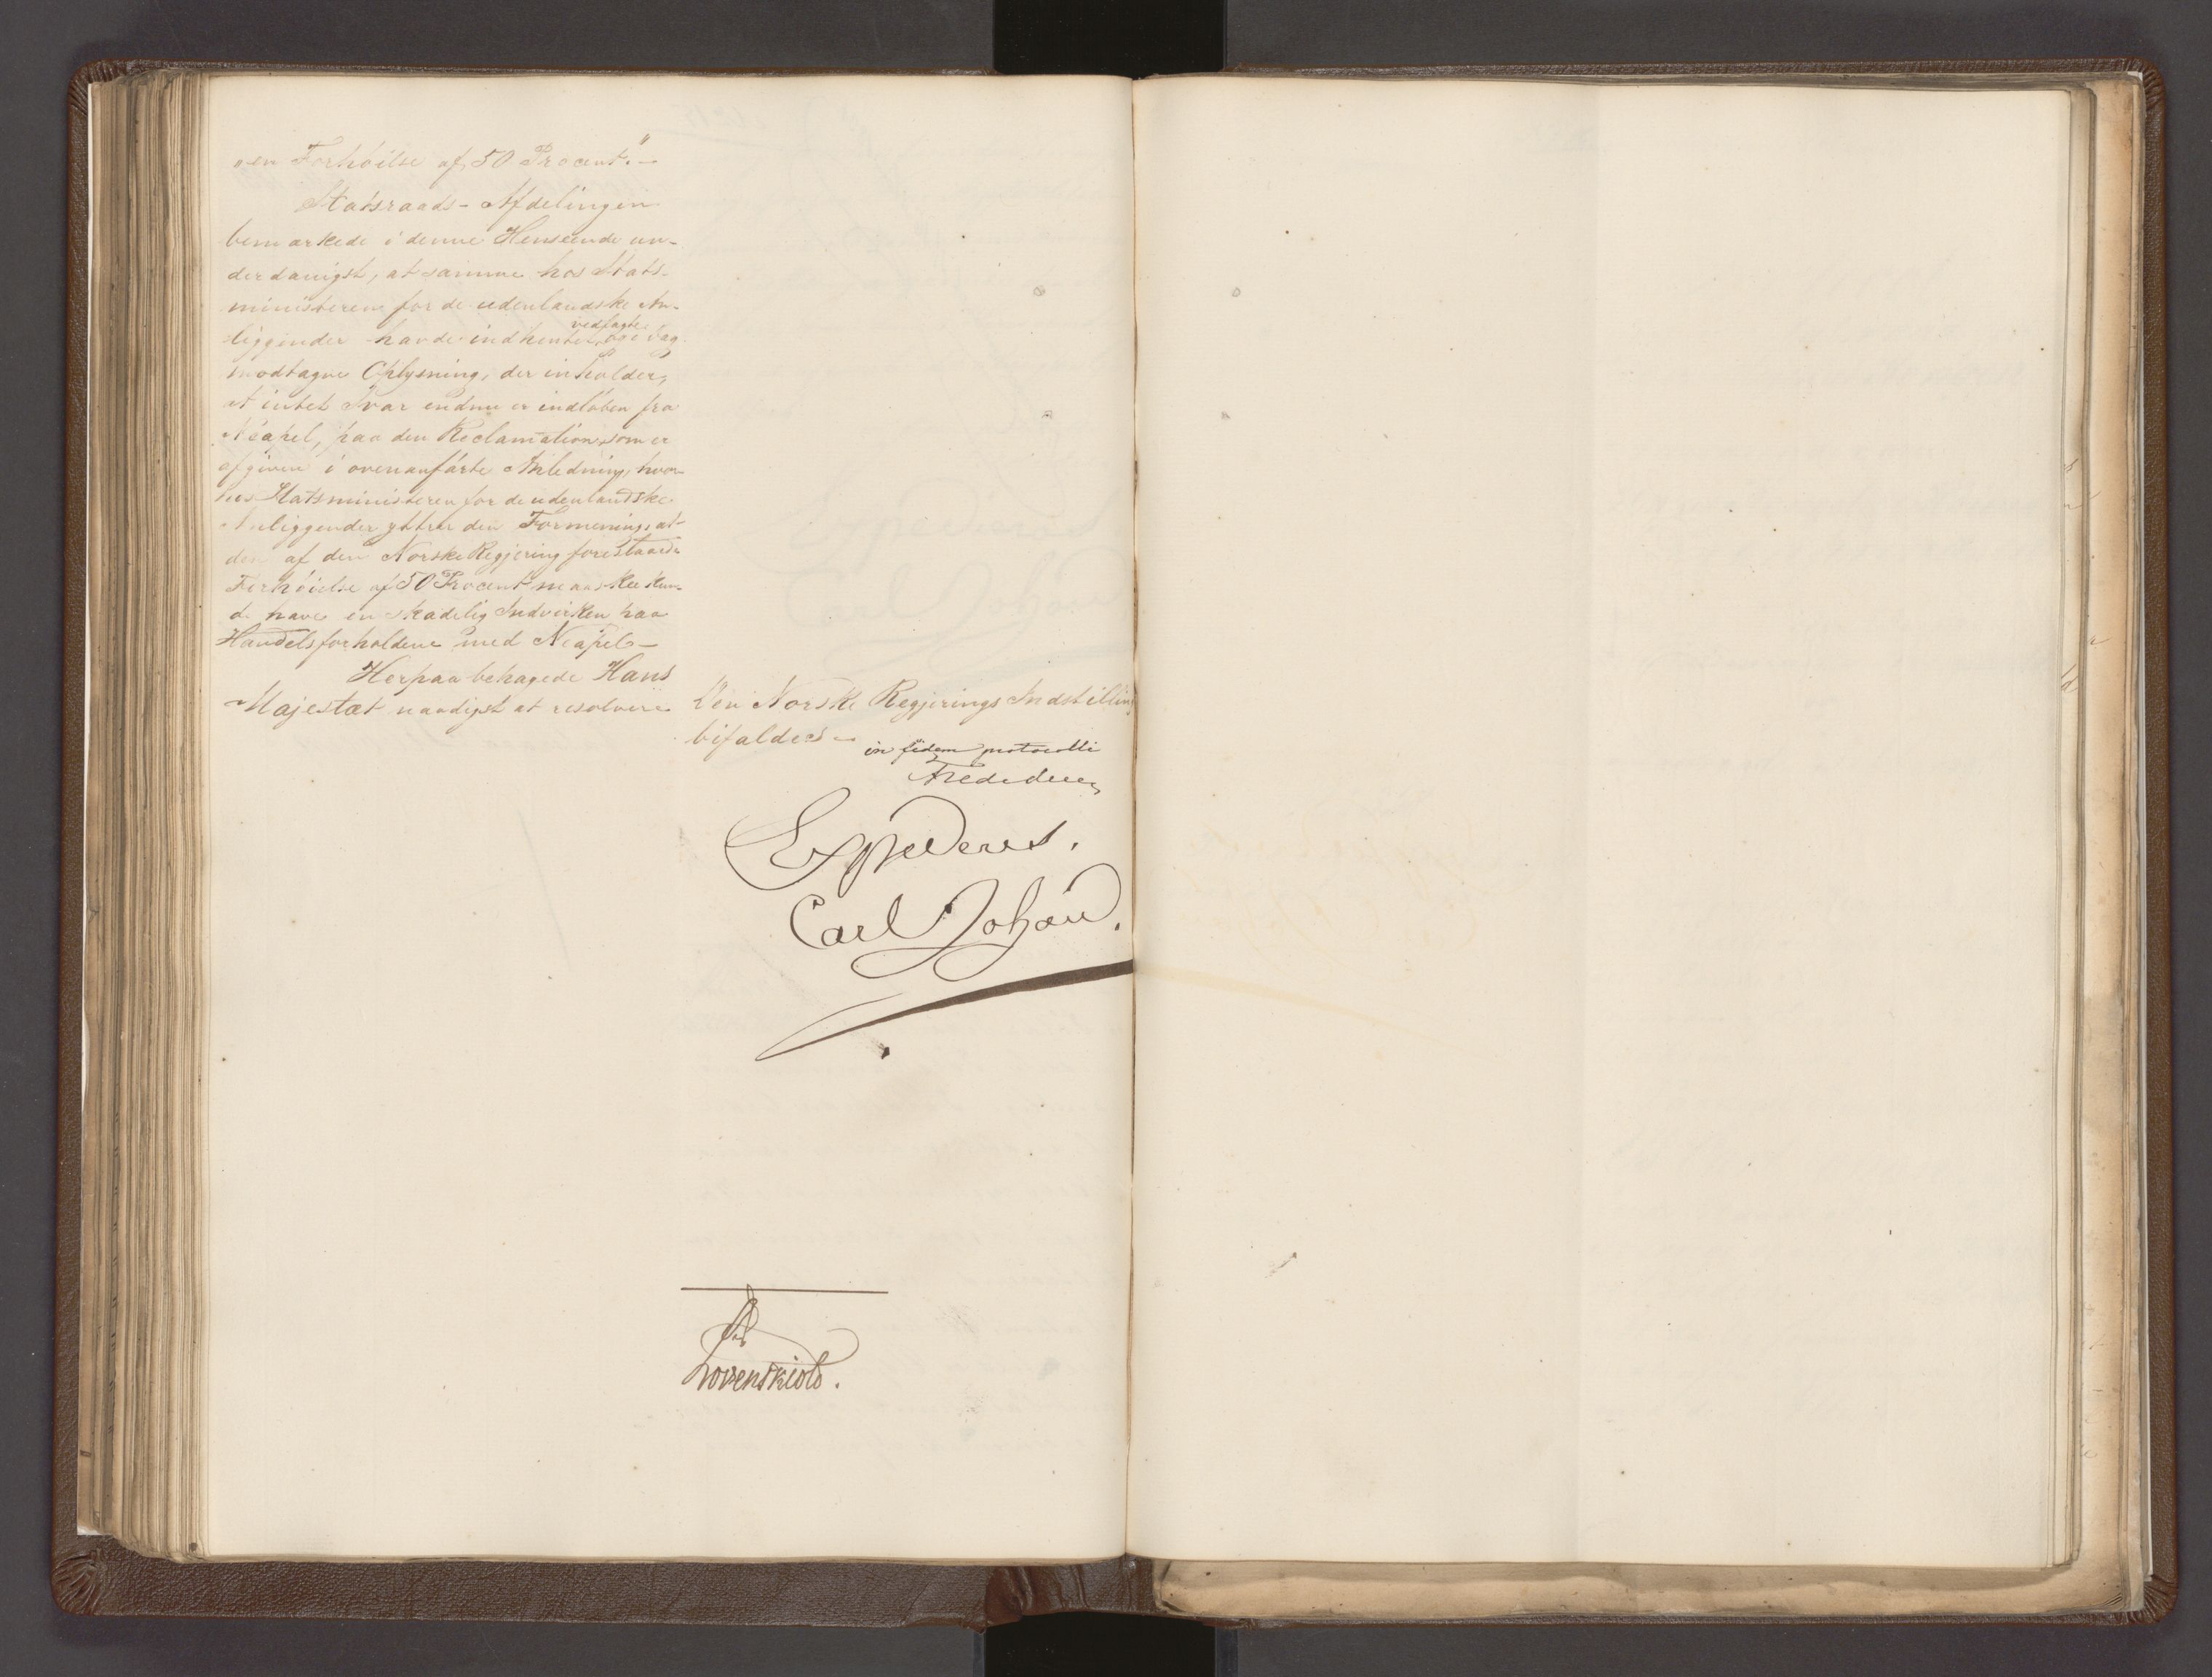 "en Forhöilse af 50 Procent."-
Statsraads-Afdelingen
bemærkede i denne Henseende un-
derdanigst, at samme hos Stats-
ministeren for de udenlandske An-
liggender havde indhentet vedfagte og i Dag
modtagne Oplysning, der inholder,
at intet Svar endnu er indlöben fra
Neapel, paa den Reclamation som er
afgiven i ovenanförte Anledning, hvor-
hos Statsministeren for de udenlandske
Anliggender yttrer den Formening, at
den af den Norske Regjering foreslaaede
Forhöielse af 50 Procent maaskee kun-
de have en skadelig Indvirken paa
Handelsforholdene med Neapel-
Herpaa behagede Hans
Majestæt naadigst at resolvere
Den Norske Regjerings Indstilling
bifaldes-
in fidem protocolli
Expederes.
Carl Johan.
Løvenskiold.